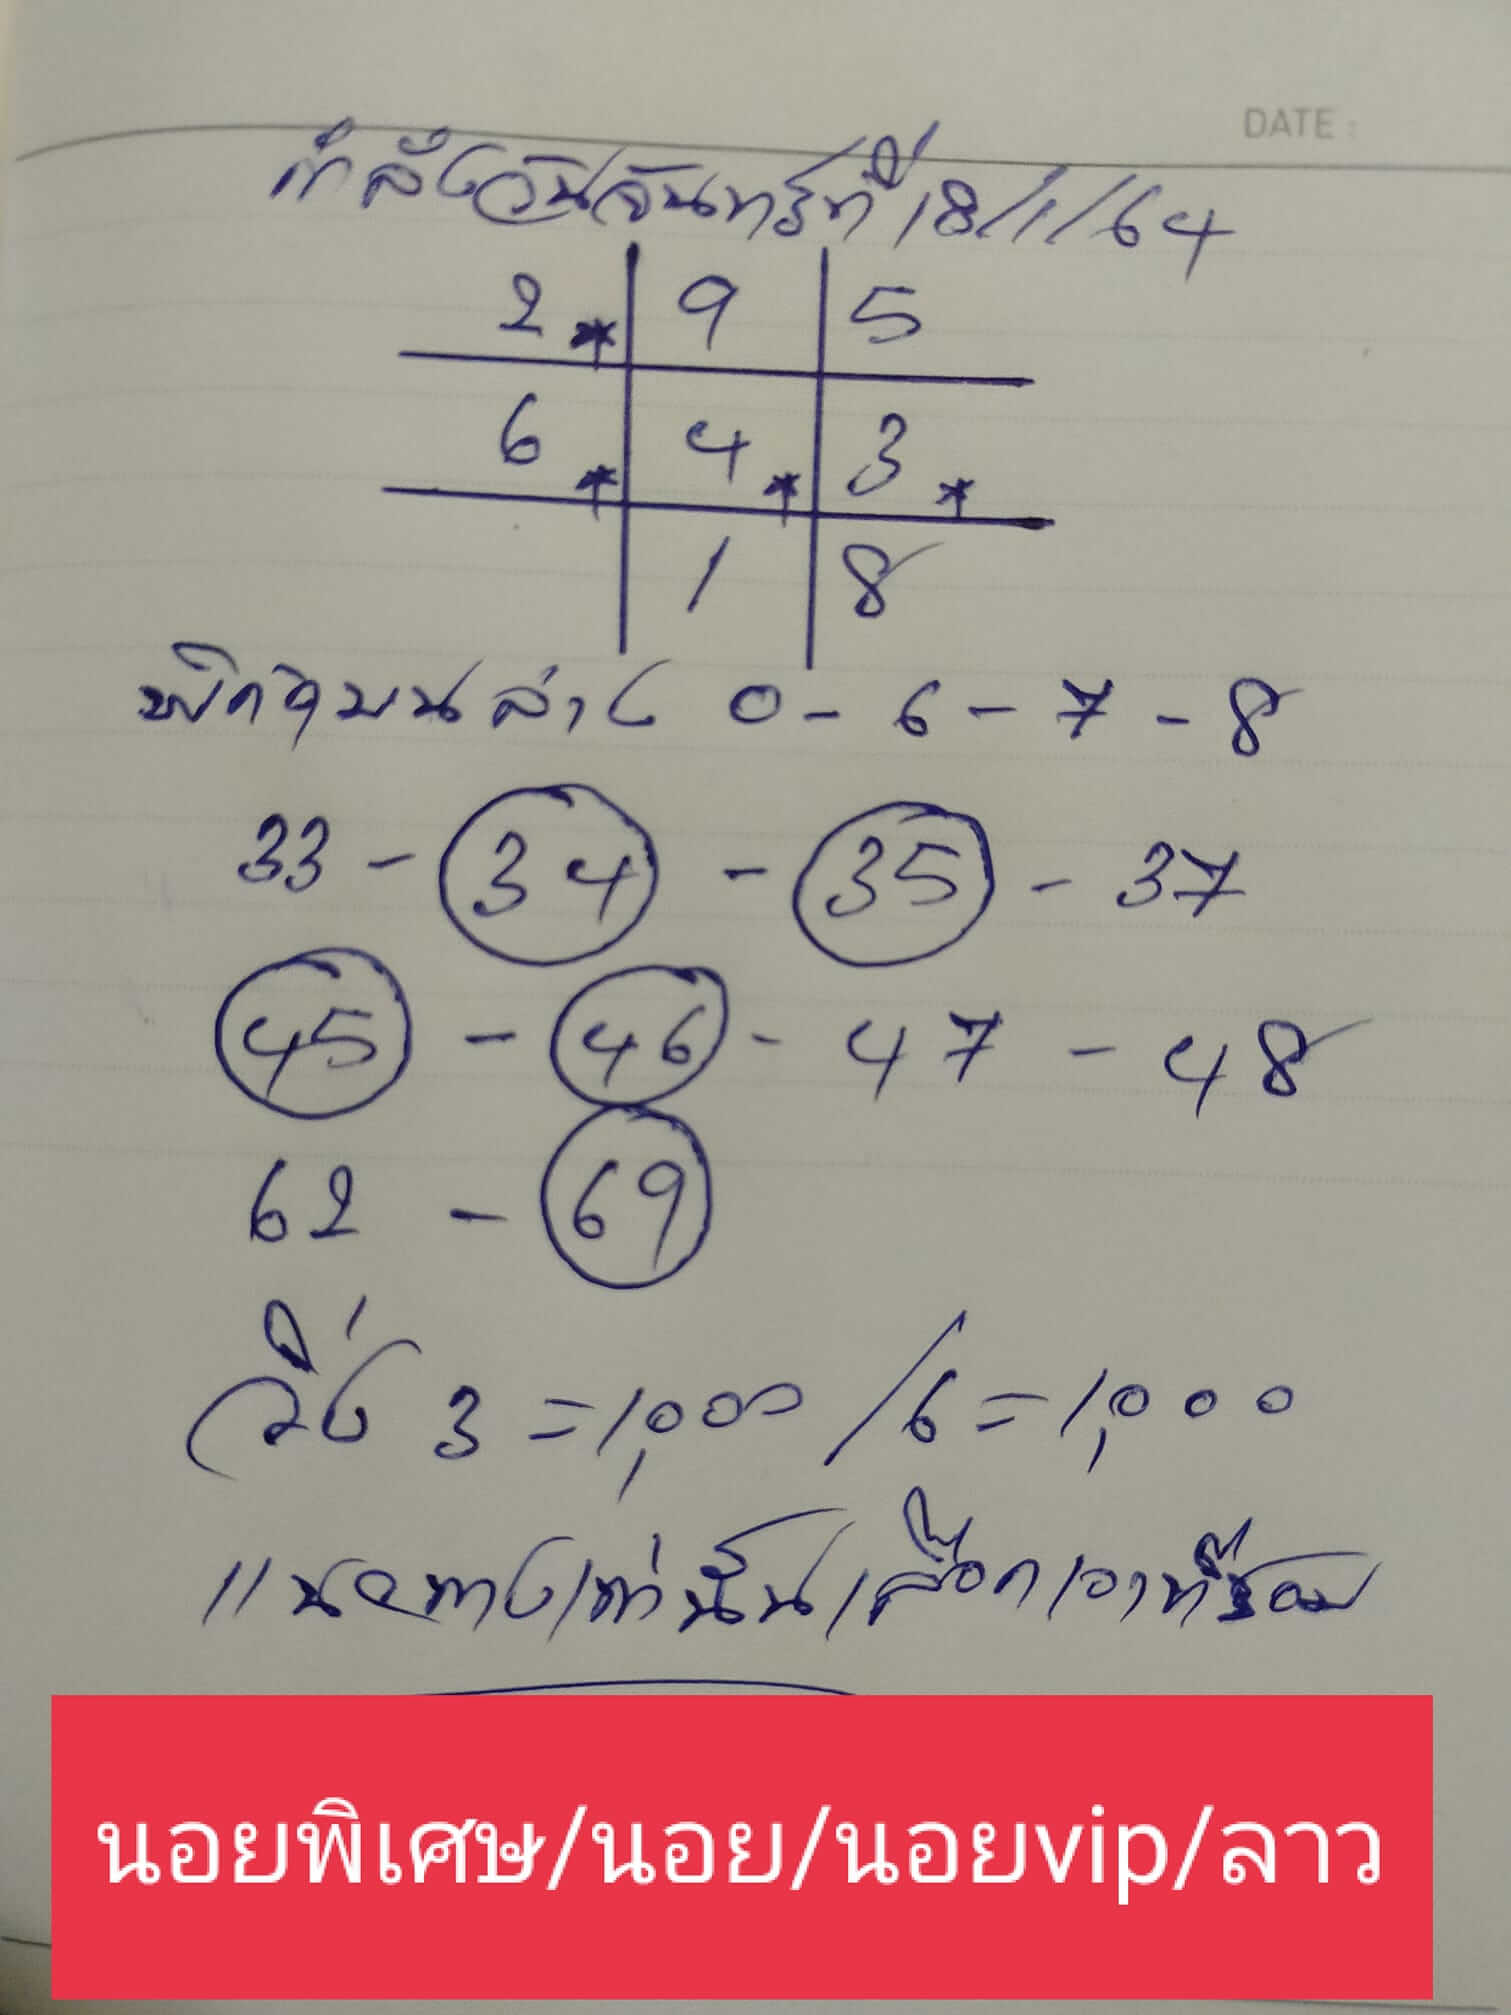 DATE :
กำลังวันจันทร์ที่ 18/1/64
2 * 9 5
6 * 4 * 3 *
1 8
พิกคู่บนล่าง 0 - 6 - 7 - 8
33 - 34 - 35 - 37
45 - 46 - 47 - 48
62 - 69
วิ่ง 3 = 1,000 / 6 = 1,000
แนวทางเท่านั้นเลือกเอาที่ชอบ
นอยพิเศษ/นอย/นอยvip/ลาว